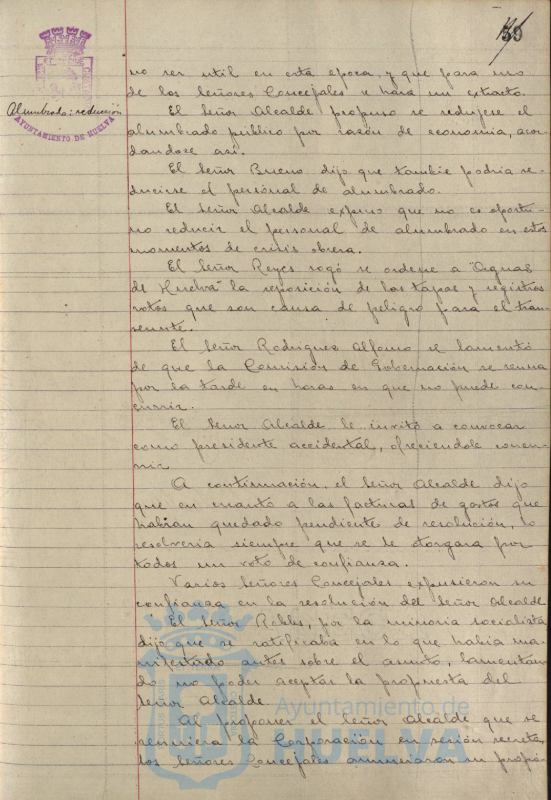 no ser util en esta epoca, y que para uso
de los Señores Concejales se hara un extracto.
Alumbrado: reducción
AYUNTAMIENTO DE HUELVA
El Señor Alcalde propuso se redujese el
alumbrado público por razón de economia, acor-
dandose asi.
El Señor Bueno dijo que tambie podria re-
ducirse el personal de alumbrado.
El Señor Alcalde expuso que no es oportu-
no reducir el personal de alumbrado en estos
momentos de crisis obrera.
El Señor Reyes rogó se ordene a "Aguas
de Huelva" la reposición de las tapas y registros
rotos que son causa de peligro para el tran-
seunte.
El Señor Rodriguez Alfonso se lamentó
de que la Comisión de Gobernación se reuna
por la tarde en horas en que no puede con-
currir.
El Señor Alcalde le invitó a convocar
como presidente accidental, ofreciendole concu-
rrir
A continuación, el Señor Alcalde dijo
que en cuanto a las facturas de gastos que
habian quedado pendiente de resolución, lo
resolveria siempre que se le otorgara por
todos un voto de confianza.
Varios Señores Concejales expusieron su
confianza en la resolución del Señor Alcalde
El Señor Robles, por la minoria socialista
dijo que se ratificaba en lo que habia ma-
nifestado antes sobre el asunto, lamentan-
do no poder aceptar la propuesta del
Señor Alcalde
Al proponer el Señor Alcalde que se
reuniera la Corporación en sesión secreta,
los Señores Concejales anunciaron su propó-
Ayuntamiento de
HUELVA